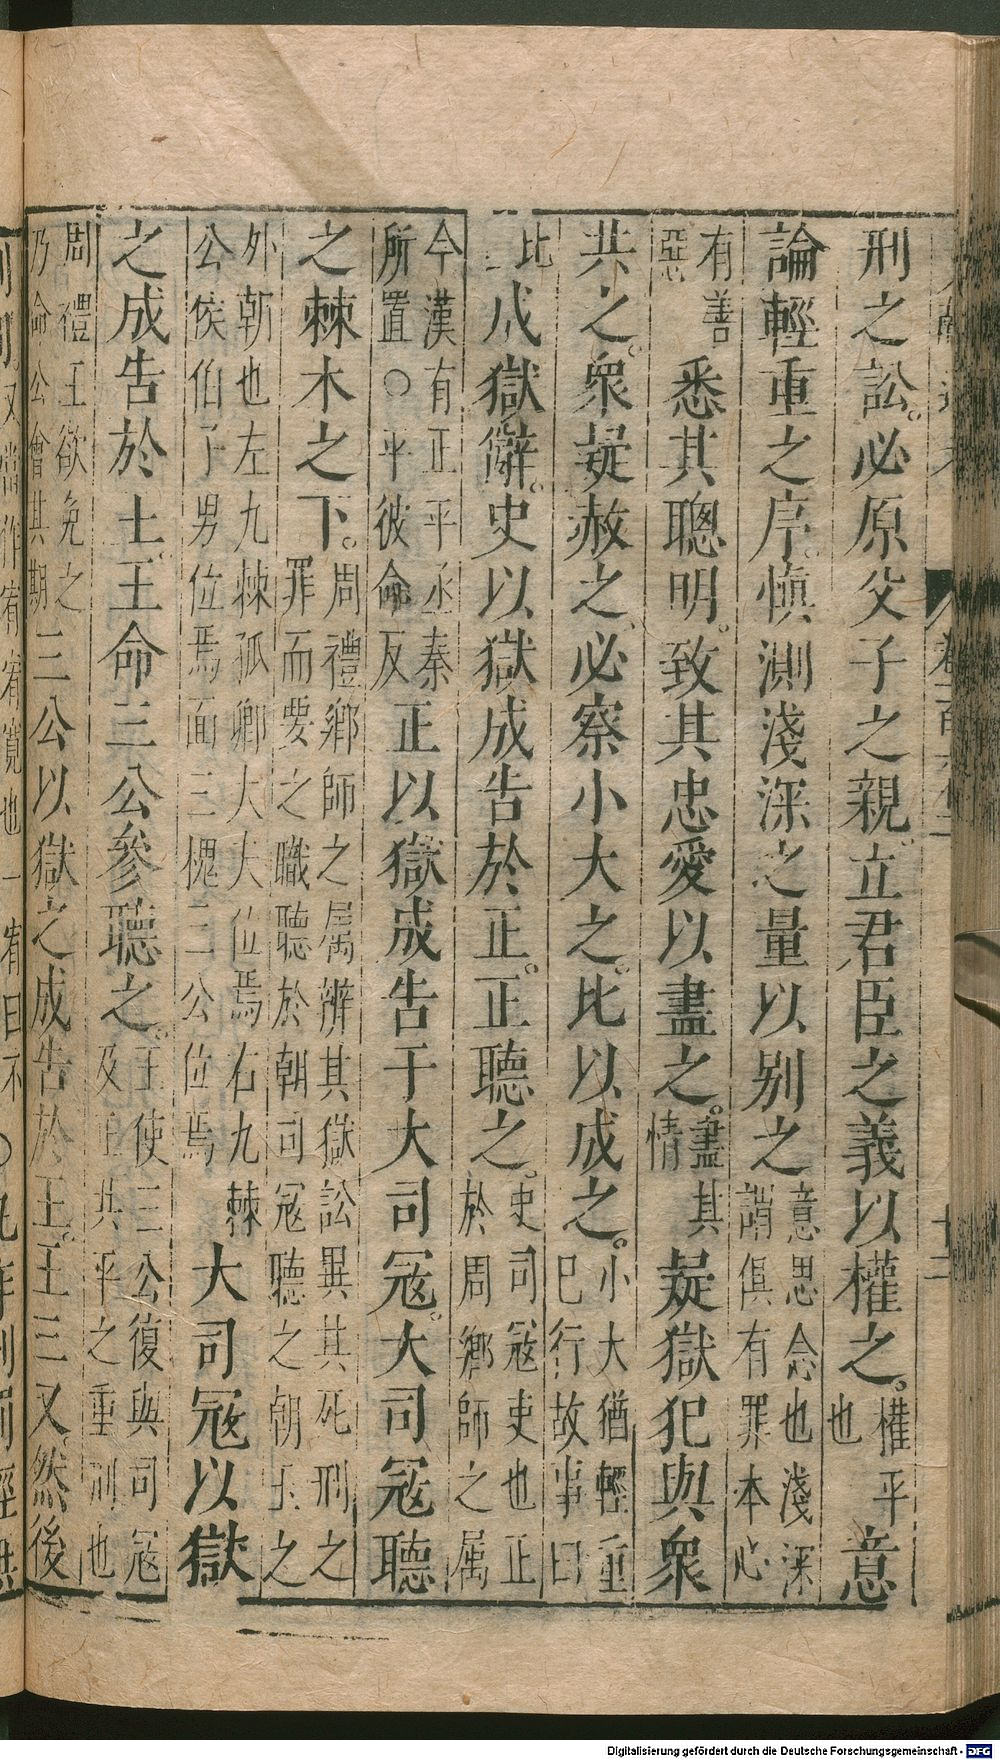 刑之訟。必原父子之親。立君臣之義以權之。權平也意
論輕重之序。慎測淺深之量以别之意思念也淺深謂俱有罪本心
有善惡悉其聰明。致其忠愛以盡之。盡其情疑獄犯與衆
共之。衆疑赦之、必察小大之。比以成之。小大猶輕重已行故事曰
比成獄辭。史以獄成告於正。正聽之。史司冦吏也正於周鄉師之属
今漢有正平丞秦所置○平彼命反正以獄成告于大司冦。大司冦聽
之棘木之下。周禮鄉師之属辨其獄訟異其死刑之罪而要之職聽於朝司冦聽之朝王之
外朝也左九棘孤卿大夫位焉右九棘公侯伯子男位焉面三槐三公位焉大司冦以獄
之成告於王。王命三公參聽之。王使三公復與司冦及正共平之重刑也
周禮王欲免之乃命公會其期三公以獄之成告於王。王三又。然後
又當作宥宥寬也一宥曰不
Digitalisierung gefördert durch die Deutsche Forschungsgemeinschaft - DFG